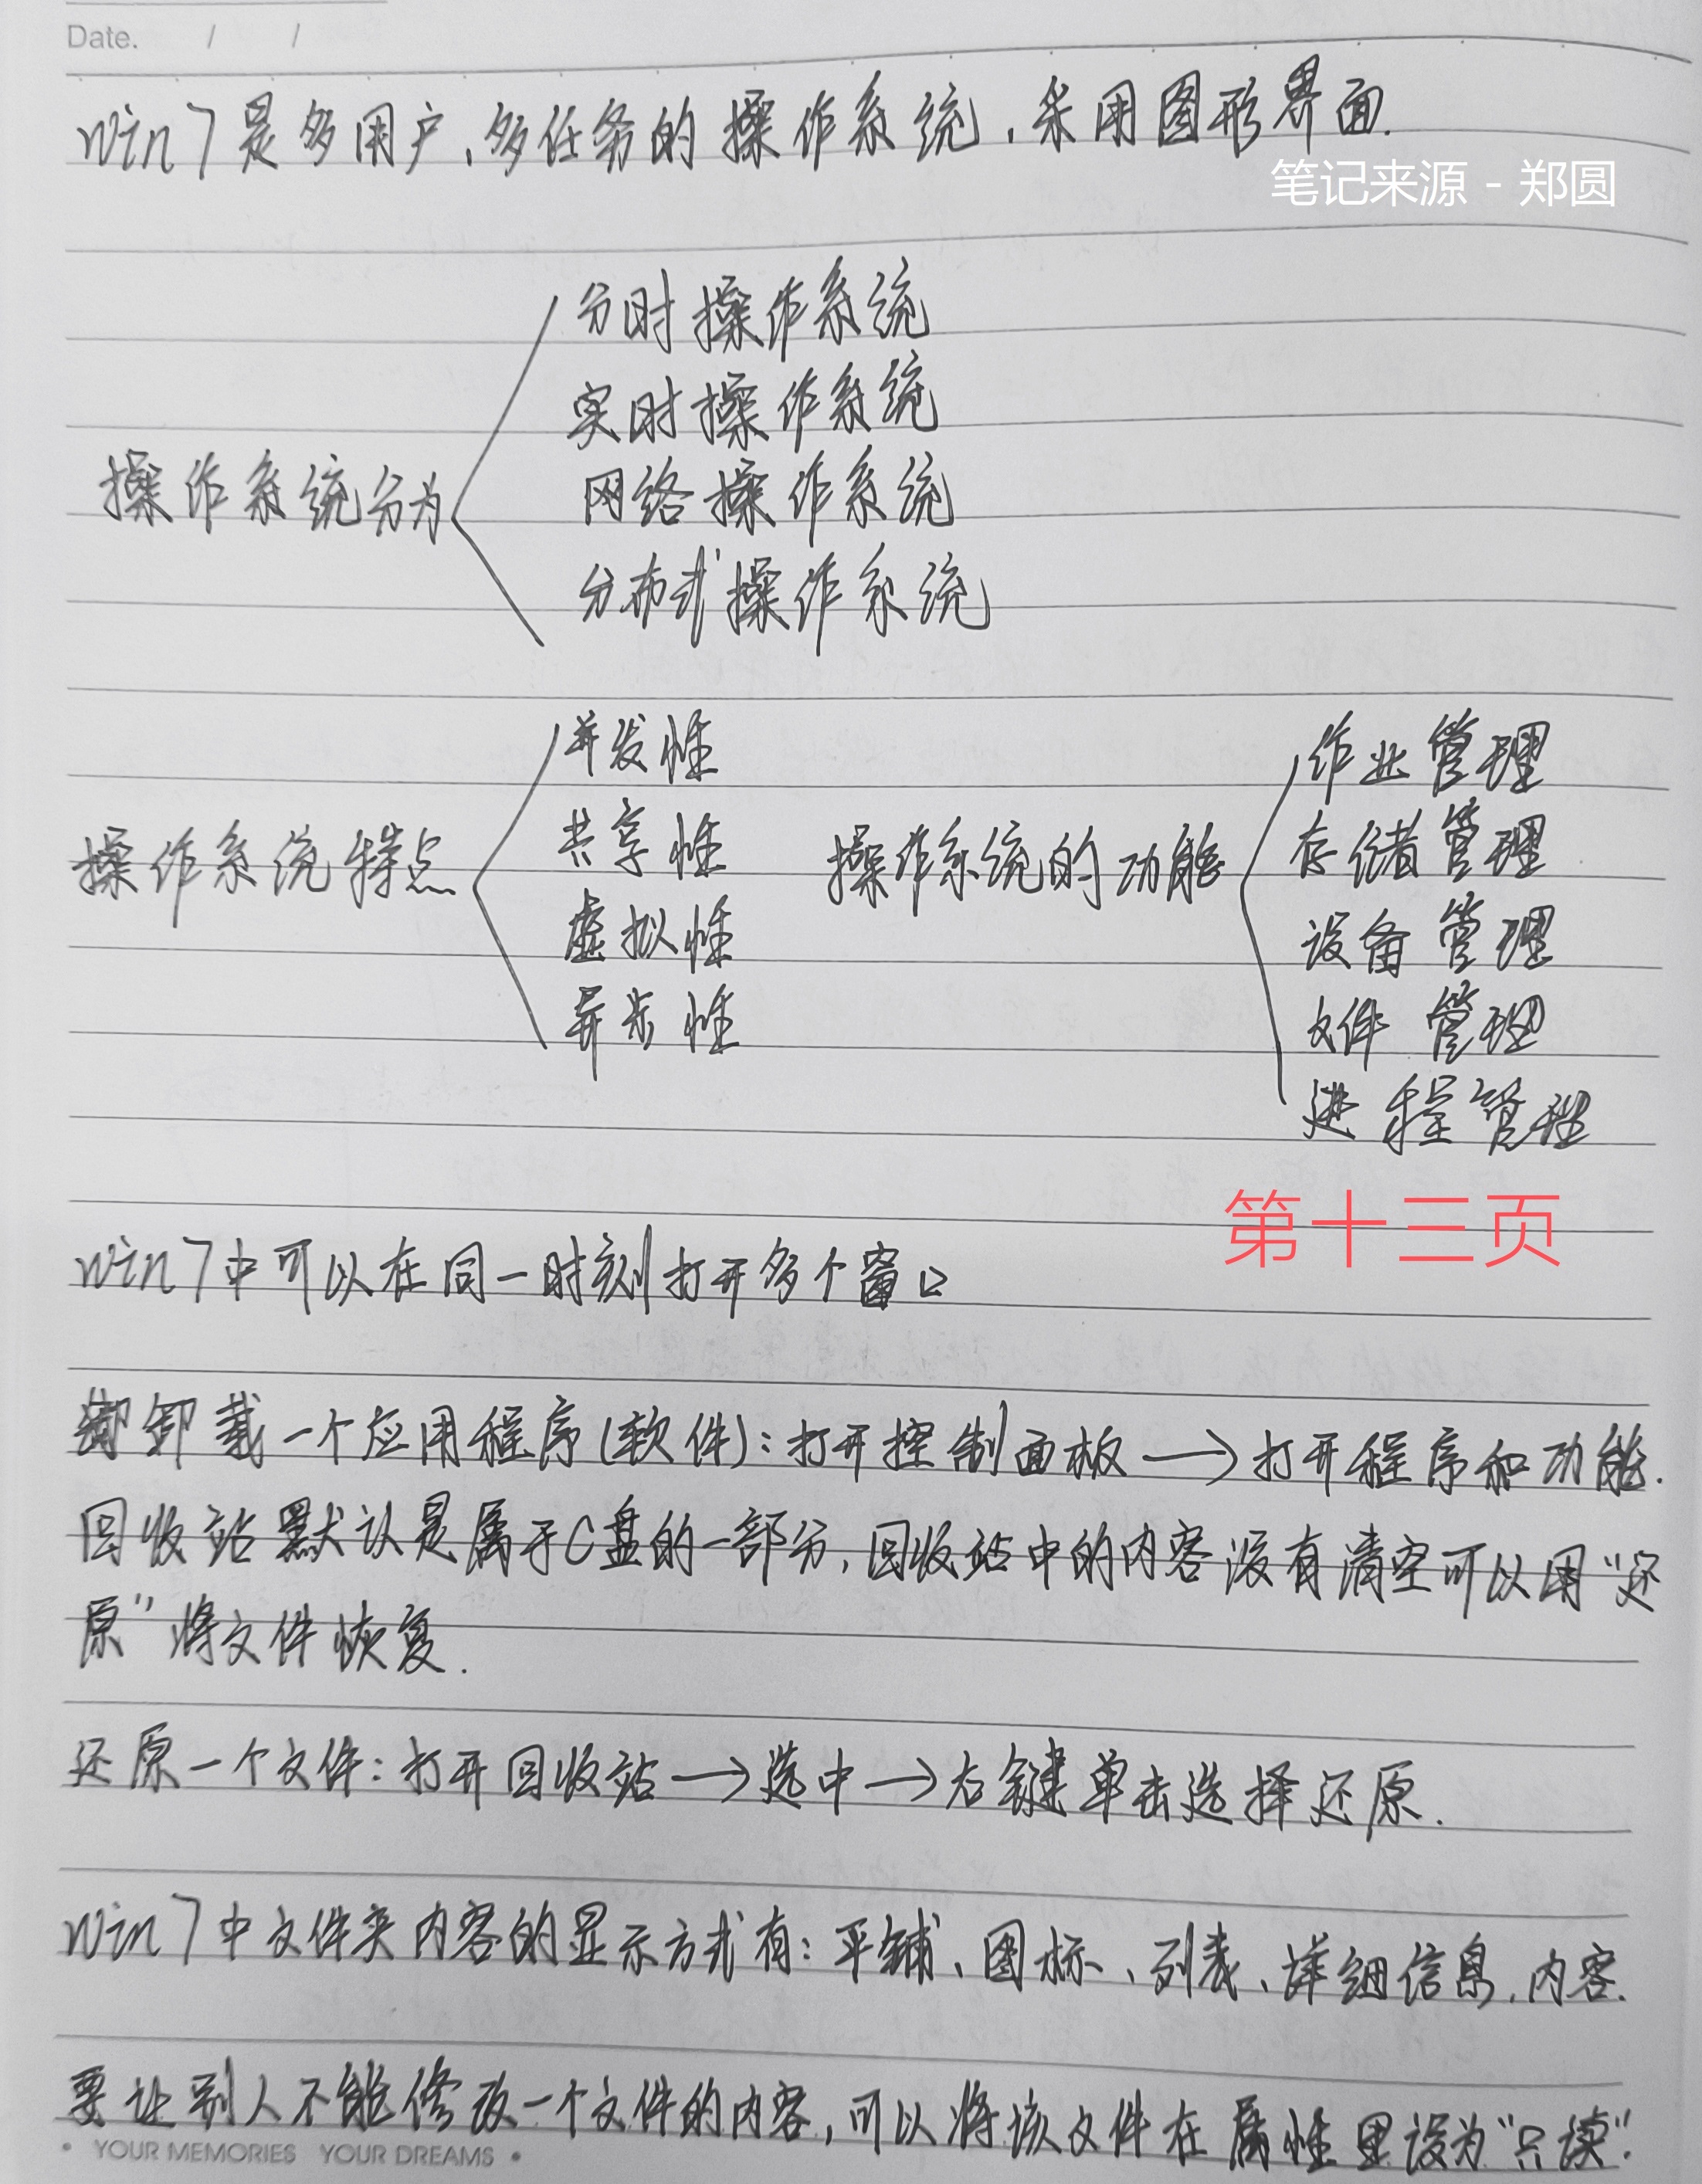 Date. / /
win7是多用户、多任务的操作系统,采用图形界面.
笔记来源 - 郑圆
分时操作系统
实时操作系统
操作系统分为
网络操作系统
分布式操作系统
并发性
共享性
操作系统特点
虚拟性
异步性
作业管理
存储管理
操作系统的功能
设备管理
文件管理
进程管理
第十三页
win7中可以在同一时刻打开多个窗口
卸载一个应用程序(软件):打开控制面板→打开程序和功能.
回收站默认是属于C盘的一部分,回收站中的内容没有清空可以用“还
原”将文件恢复.
还原一个文件:打开回收站→选中→右键单击选择还原.
win7中文件夹内容的显示方式有:平铺、图标、列表、详细信息、内容.
要让别人不能修改一个文件的内容,可以将该文件在属性里设为“只读”.
• YOUR MEMORIES YOUR DREAMS •